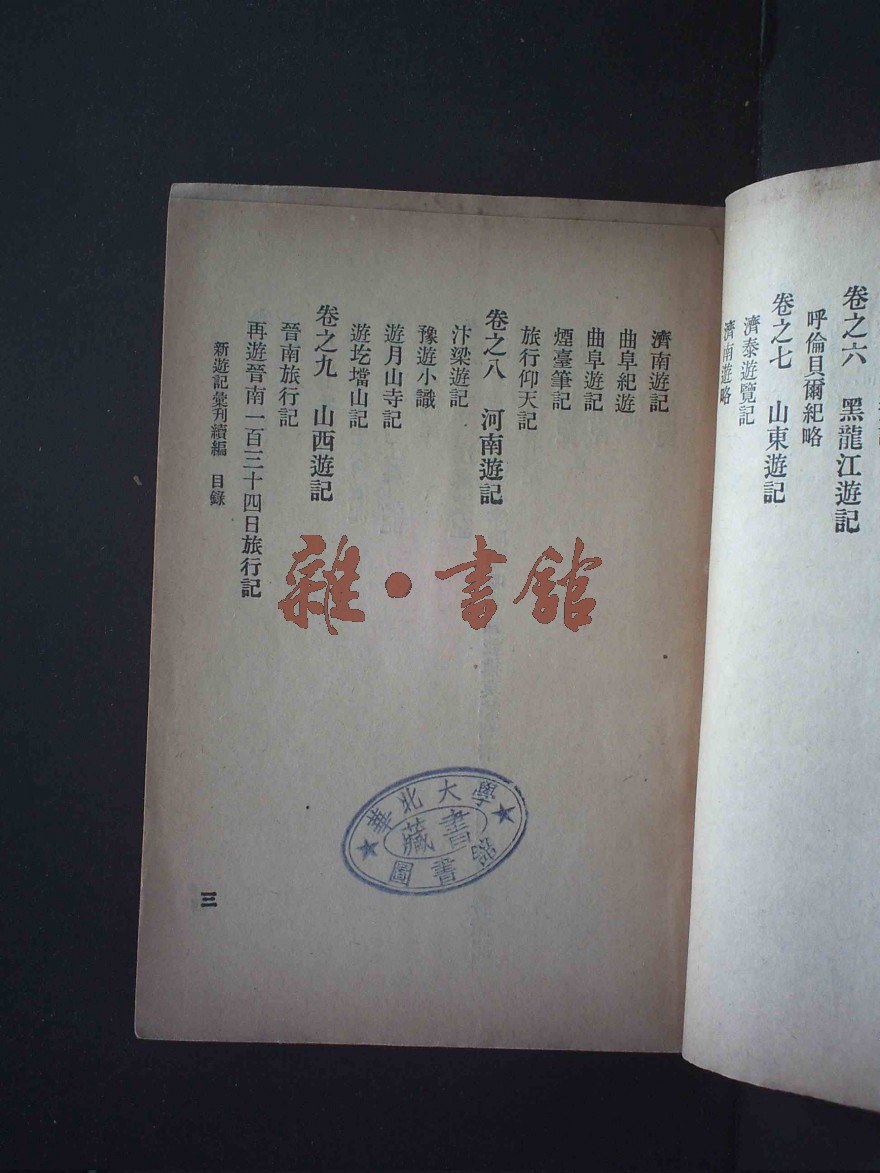 卷之六　黑龍江遊記
呼倫貝爾紀略
卷之七　山東遊記
濟泰遊覽記
濟南遊略
濟南遊記
曲阜紀遊
曲阜遊記
煙臺筆記
旅行仰天記
卷之八　河南遊記
汴梁遊記
豫遊小識
遊月山寺記
遊圪壋山記
卷之九　山西遊記
晉南旅行記
再遊晉南一百三十四日旅行記
新遊記彙刋續編　目錄
三
雜·書館
華北大學
藏書
圖書館